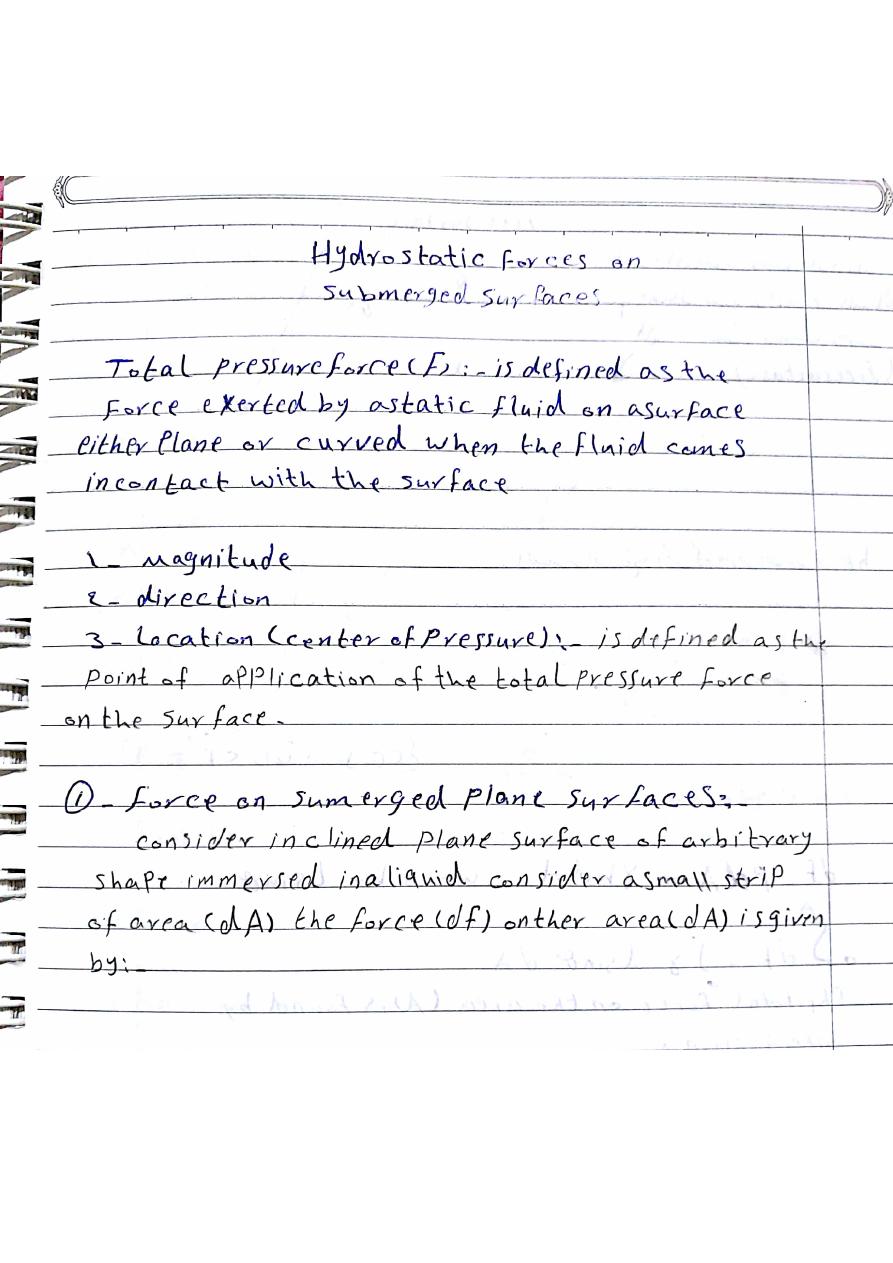 Hydrostatic forces on
submerged surfaces
Total pressure force (F) :- is defined as the
Force exerted by a static fluid on a surface
either plane or curved when the fluid comes
in contact with the surface
1- magnitude
2- direction
3- Location (center of Pressure):- is defined as the
Point of application of the total pressure force
on the surface.
① - force on sumerged plane surfaces:-
consider inclined plane surface of arbitrary
shape immersed in a liquid consider a small strip
of area (dA) the force (df) on ther area (dA) is given
by:-